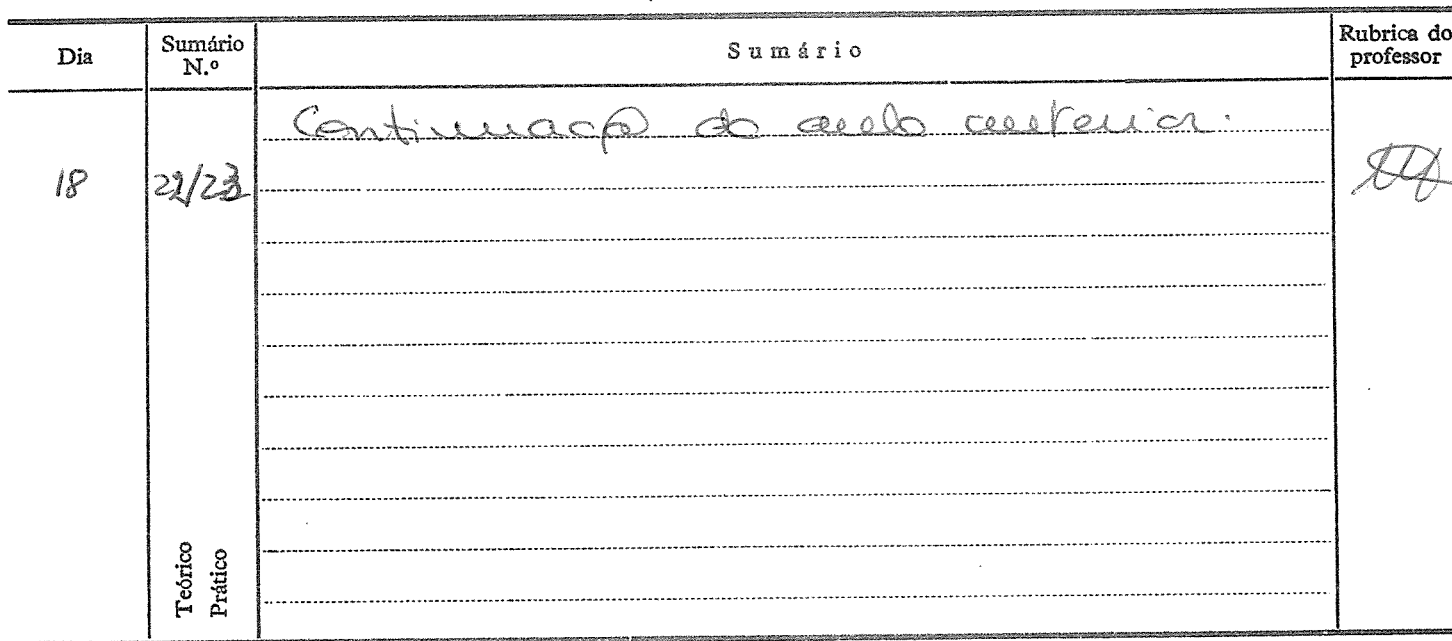 Dia
Sumário N.º
Sumário
Rubrica do professor
Continuação do aula anterior.
18
22/23
Teórico
Prático